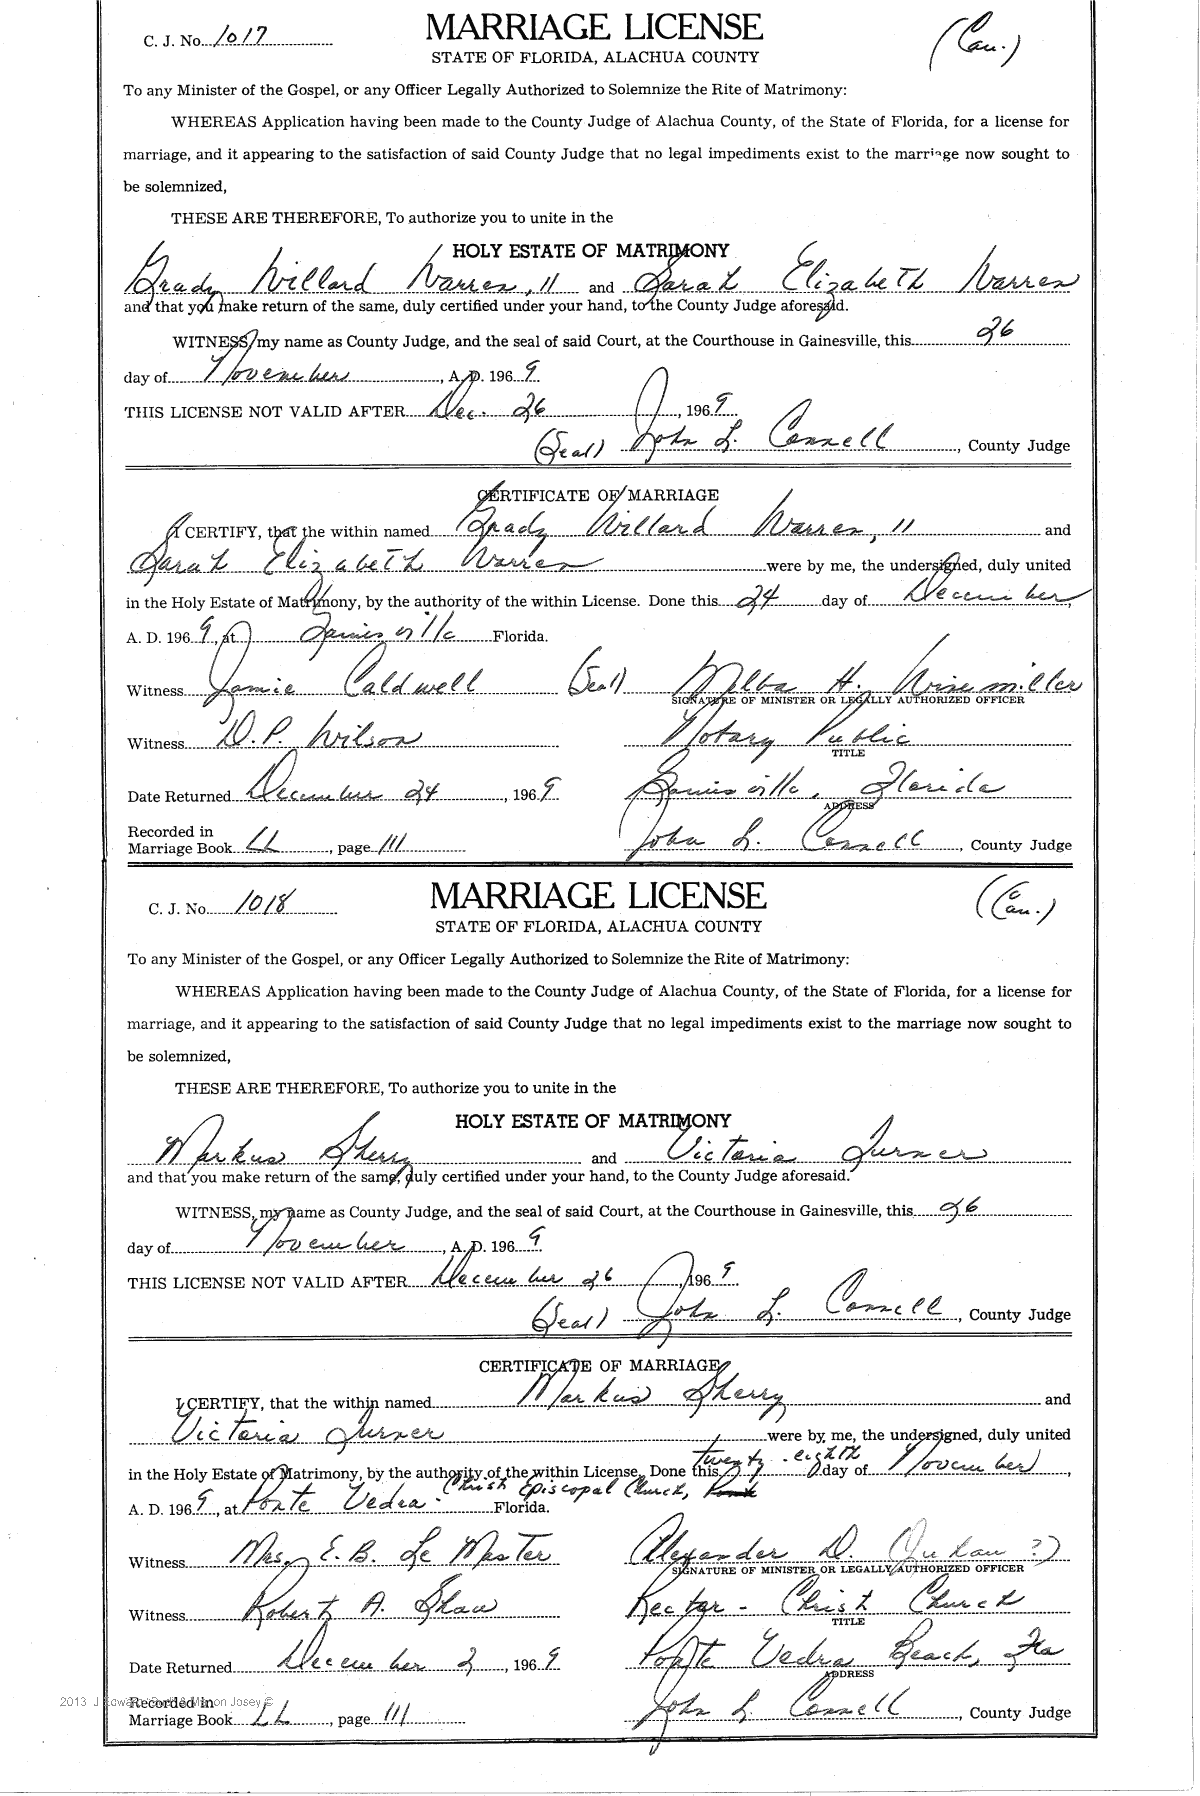 C. J. No. 1017
MARRIAGE LICENSE
(Cau.)
STATE OF FLORIDA, ALACHUA COUNTY
To any Minister of the Gospel, or any Officer Legally Authorized to Solemnize the Rite of Matrimony:
WHEREAS Application having been made to the County Judge of Alachua County, of the State of Florida, for a license for
marriage, and it appearing to the satisfaction of said County Judge that no legal impediments exist to the marriage now sought to
be solemnized,
THESE ARE THEREFORE, To authorize you to unite in the
HOLY ESTATE OF MATRIMONY
Grady Willard Warren, 11 and Sarah Elizabeth Warren
and that you make return of the same, duly certified under your hand, to the County Judge aforesaid.
WITNESS, my name as County Judge, and the seal of said Court, at the Courthouse in Gainesville, this 26
day of November, A. D. 1969
THIS LICENSE NOT VALID AFTER Dec. 26, 1969
(Seal) John L. Connell, County Judge
CERTIFICATE OF MARRIAGE
I CERTIFY, that the within named Grady Willard Warren, 11 and
Sarah Elizabeth Warren were by me, the undersigned, duly united
in the Holy Estate of Matrimony, by the authority of the within License. Done this 24 day of December,
A. D. 1969, at Gainesville Florida.
Witness Jamie Caldwell (Seal) Melba H. Winemiller
SIGNATURE OF MINISTER OR LEGALLY AUTHORIZED OFFICER
Witness D. P. Wilson Notary Public
TITLE
Date Returned December 24, 1969 Gainesville, Florida
ADDRESS
Recorded in
Marriage Book LL, page 111 John L. Connell, County Judge
C. J. No. 1018
MARRIAGE LICENSE
(Cau.)
STATE OF FLORIDA, ALACHUA COUNTY
To any Minister of the Gospel, or any Officer Legally Authorized to Solemnize the Rite of Matrimony:
WHEREAS Application having been made to the County Judge of Alachua County, of the State of Florida, for a license for
marriage, and it appearing to the satisfaction of said County Judge that no legal impediments exist to the marriage now sought to
be solemnized,
THESE ARE THEREFORE, To authorize you to unite in the
HOLY ESTATE OF MATRIMONY
Markus Sherry and Victoria Turner
and that you make return of the same, duly certified under your hand, to the County Judge aforesaid.
WITNESS, my name as County Judge, and the seal of said Court, at the Courthouse in Gainesville, this 26
day of November, A. D. 1969
THIS LICENSE NOT VALID AFTER December 26 1969
(Seal) John L. Connell, County Judge
CERTIFICATE OF MARRIAGE
I CERTIFY, that the within named Markus Sherry and
Victoria Turner were by me, the undersigned, duly united
twenty-eighth
in the Holy Estate of Matrimony, by the authority of the within License. Done this day of November,
Christ Episcopal Church,
A. D. 1969, at Ponte Vedra- Florida.
Witness Mrs. E. B. Le Master Alexander D. ( ?)
SIGNATURE OF MINISTER OR LEGALLY AUTHORIZED OFFICER
Witness Robert A. Shaw Rector - Christ Church
TITLE
Date Returned December 2, 1969 Ponte Vedra Beach, Fla
ADDRESS
Recorded in
Marriage Book LL, page 111 John L. Connell, County Judge
2013 Josey ©